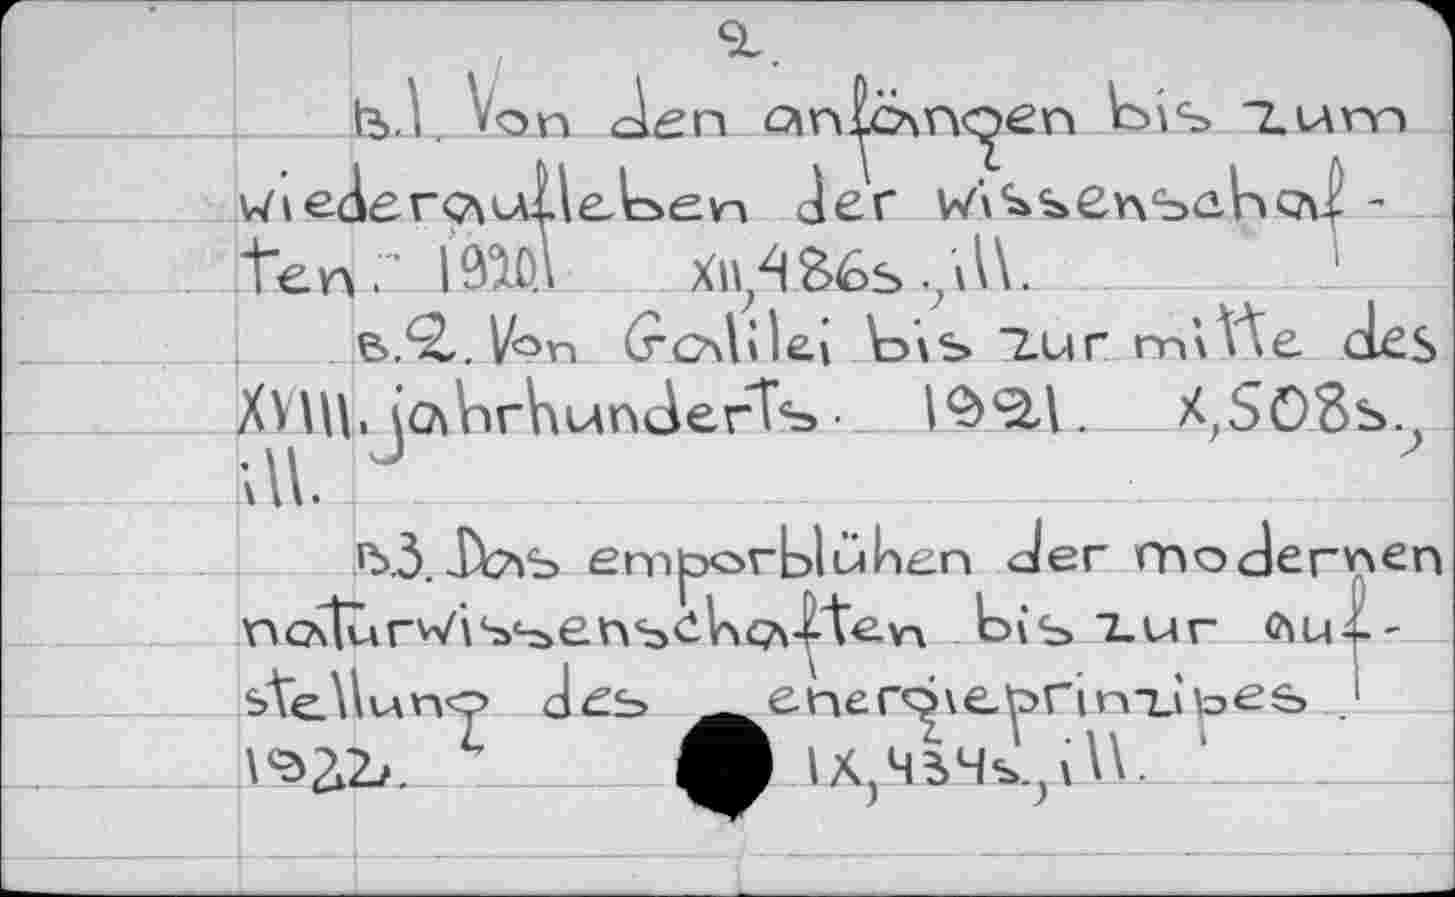 2.
B.1. Von den anfängen bis zum
wiederaufleben der wissenschaf-
ten. 1920. XII,486s.,ill.
B.2. Von Galilei bis zur mitte des
XVIII. jahrhunderts. 1921. X,508s.,
ill.
B.3. Das emporblühen der modernen
naturwissenschaften bis zur auf-
stellung des energieprinzipes.
1922. IX,434s.,ill.